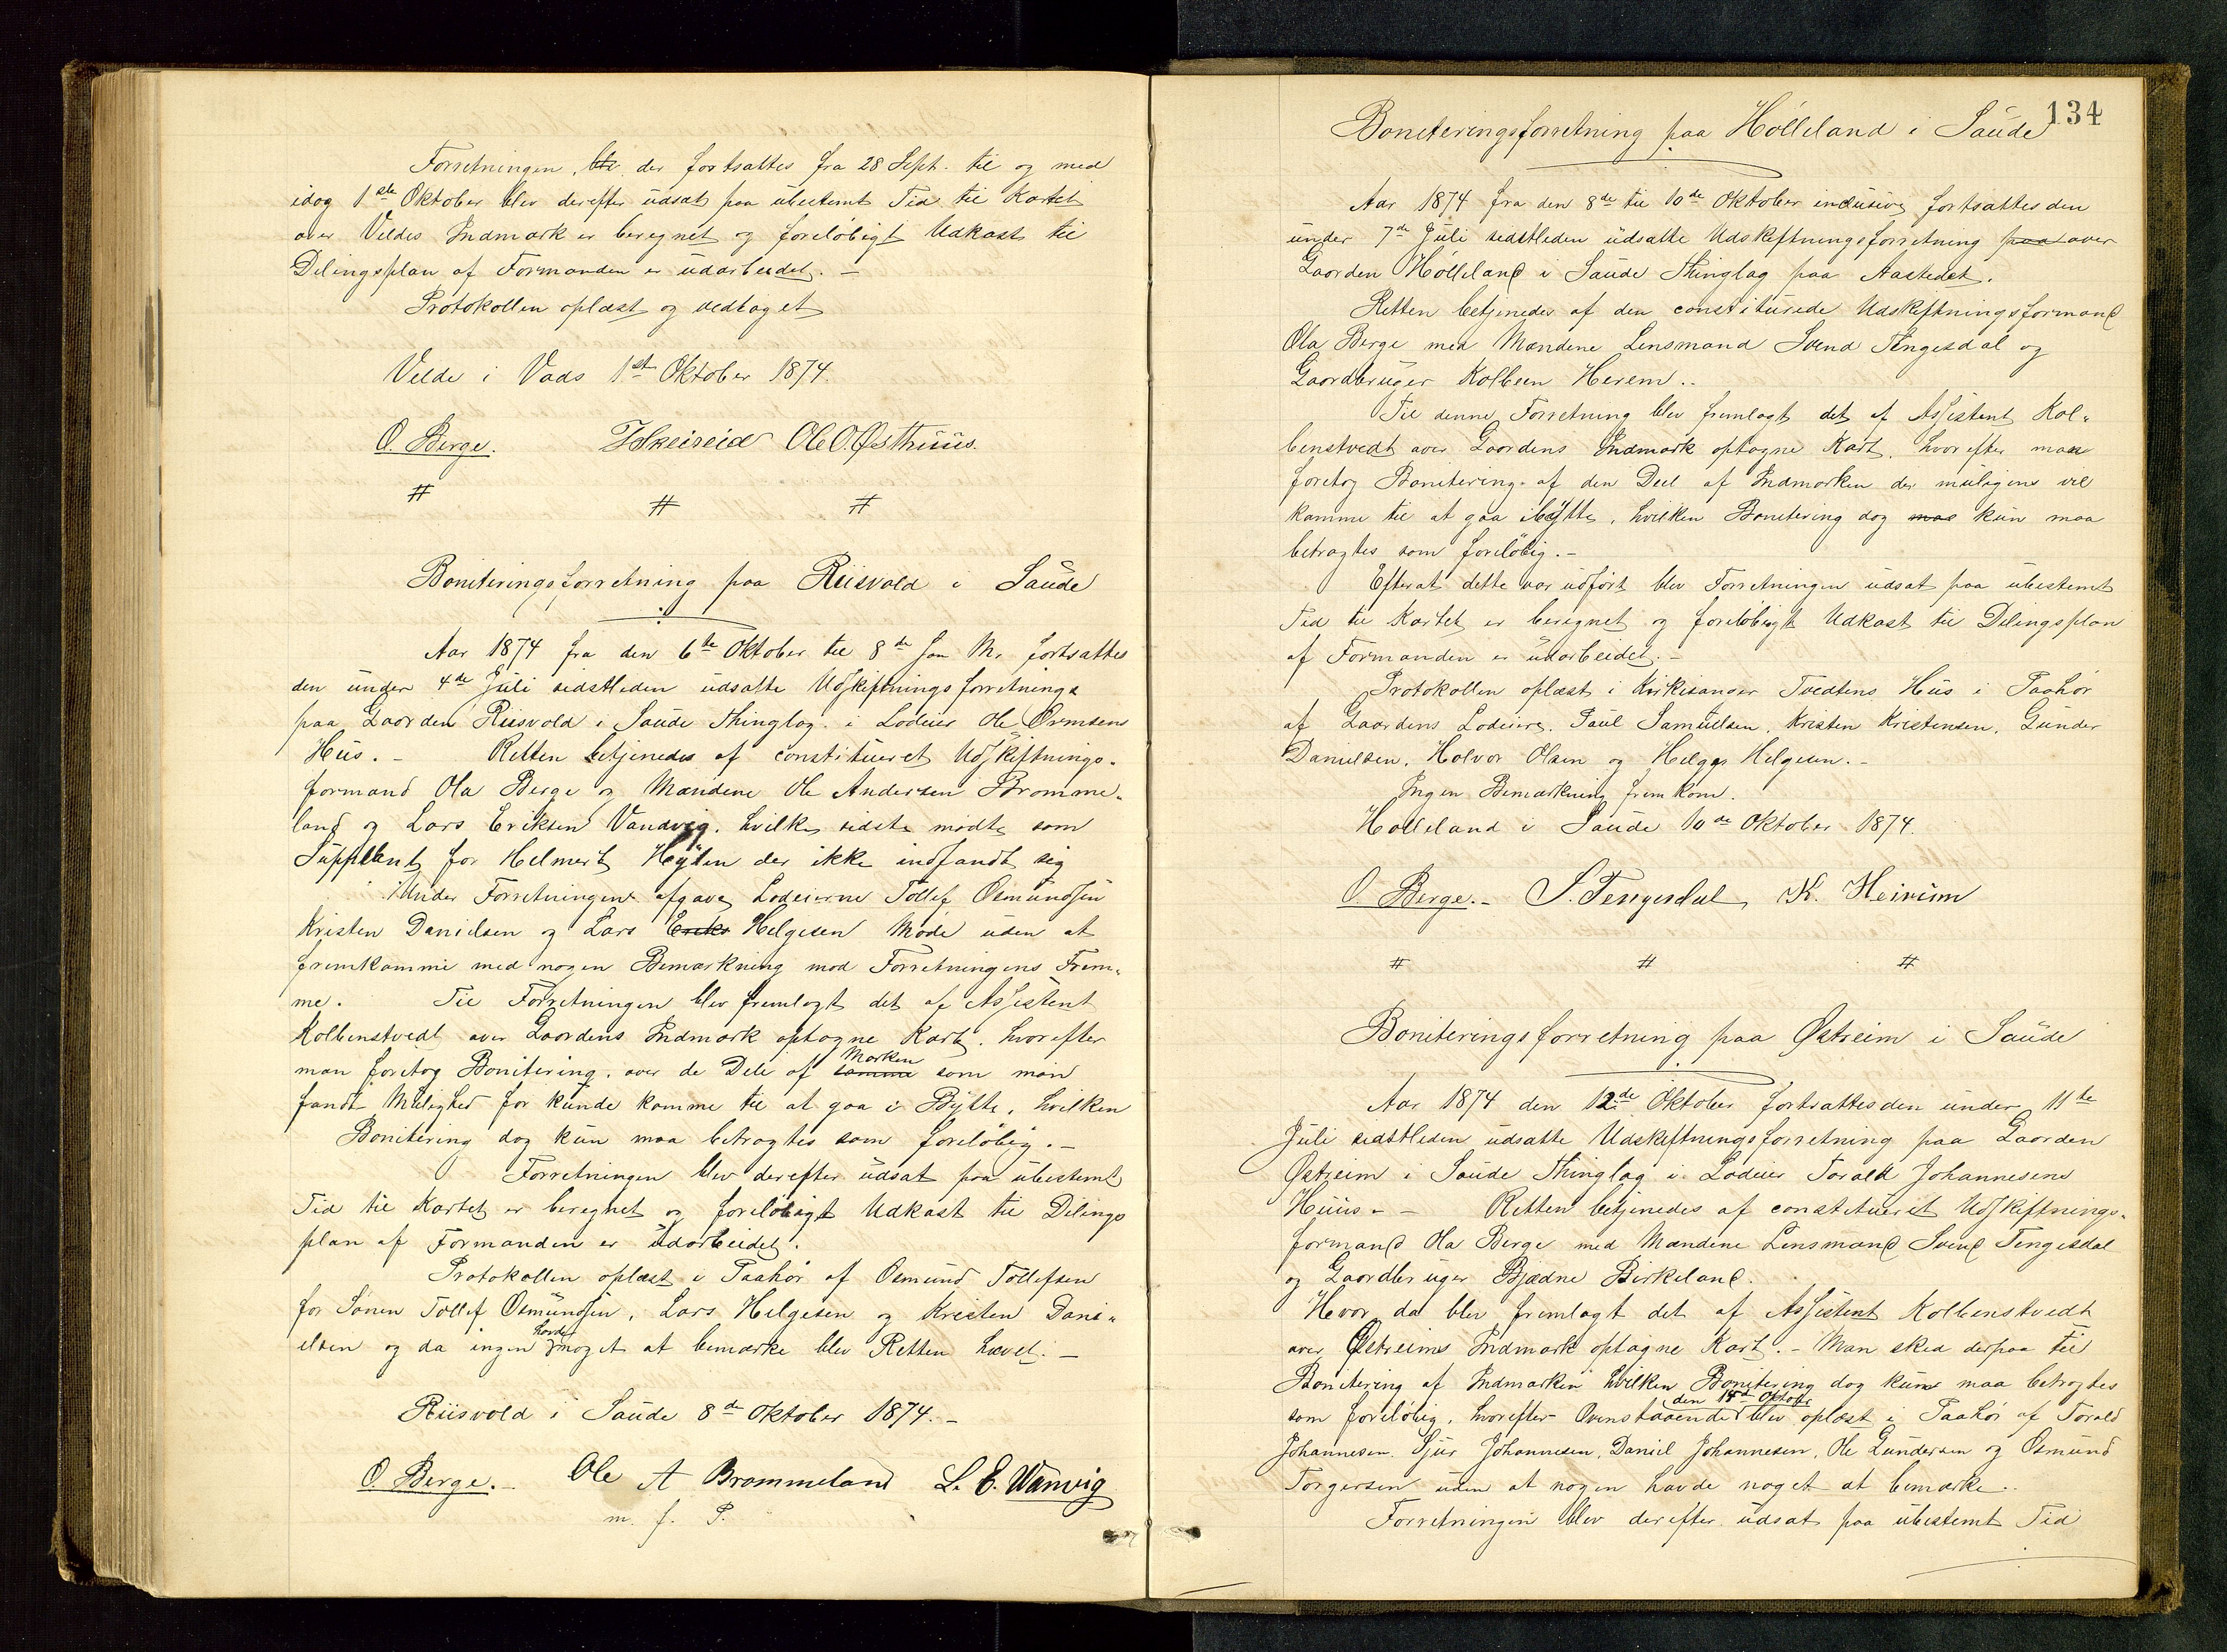 Forretningen, ble der fortsattes fra 28 Sept. til og med
idag 1ste Oktober blev derefter udsat paa ubestemt Tid til Kartet
over Veldes Indmark er beregnet og foreløbigt Udkast til
Delingsplan af Formanden er udarbeidet. –
Protokollen oplæst og vedtaget
Velde i Vads 1ste Oktober 1874.
O. Berge. T Skeiseid Ole O. Østhuus.
# # #
Boniteringsforretning paa Riisvold i Saude
Aar 1874 fra den 6te Oktober til 8de San M. fortsattes
den under 4de Juli sidstleden udsatte Udskiftningsforretnings
paa Gaarden Riisvold i Saude Thinglag i Lodeier Ole Ormsens
Hus. – Retten betjenedes af constitueret Udskiftnings-
formand Ola Berge og Mændene Ole Andersen Bromme-
land og Lars Eriksen Vandvig, hvilken sidste mødte som
Suppleant for Helmert Høylen der ikke indfandt sig
Under Forretningen afgave Lodeierne Tollef Osmundsen
Kristen Danielsen og Lars Eriks Helgesen Møde uden at
fremkomme med nogen Bemærkning mod Forretningens Frem-
me. Til Forretningen blev fremlagt det af Assistent
Kolbenstvedt over Gaardens Indmark optagne Kart, hvorefter
man foretog Bonitering over de Dele af samme Marken som man
fandt Mulighed for kunde komme til at gaa i Bytte, hvilken
Bonitering dog kun maa betragtes som foreløbig. –
Forretningen blev derefter udsat paa ubestemt
Tid til Kartet er beregnet og foreløbigt Udkast til Delings
plan af Formanden er udarbeidet.
Protokollen oplæst i Paahør af Osmund Tollefsen
for Sønen Tollef Osmundsen, Lars Helgesen og Kristen Dani-
elsen og da ingen havde noget at bemærke blev Retten hævet. –
Riisvold i Saude 8de Oktober 1874. –
O. Berge. – Ole A Brommeland L. E. Wanvig
m. f. P.
134
Boniteringsforretning paa Hølleland i Saude
Aar 1874 fra den 8de til 10de Oktober inclusive fortsattes den
under 7de Juli sidstleden udsatte Udskiftningsforretning paa over
Gaarden Hølleland i Saude Thinglag paa Aastedet.
Retten betjenedes af den constituerede Udskiftningsformand
Ola Berge med Mændene Lensmand Svend Tengesdal og
Gaardbruger Kolbeen Herem..
Til denne Forretning blev fremlagt det af Assistent Kol-
benstvedt over Gaardens Indmark optagne Kart, hvorefter man
foretog Bonitering af den Deel af Indmarken der muligens vil
komme til at gaa i Bytte, hvilken Bonitering dog maa kun maa
betragtes som foreløbig. –
Efterat dette var udført blev Forretningen udsat paa ubestemt
Tid til Kartet er beregnet og foreløbigt Udkast til Delingsplan
af Formanden er udarbeidet. –
Protokollen oplæst i Kirkesanger Tvedtens Hus i Paahør
af Gaardens Lodeiere, Paul Samuelsen, Kristen Kristensen, Gunder
Danielsen, Halvor Olsen og Helge Helgesen. –
Ingen Bemærkning fremkom.
Hølleland i Saude 10de Oktober 1874.
O. Berge. – S. Tengesdal, K. Heirum
# # #
Boniteringsforretning paa Østreim i Saude
Aar 1874 den 12de Oktober fortsattes den under 11te
Juli sidstleden udsatte Udskiftningsforretning paa Gaarden
Østreim i Saude Thinglag i Lodeier Torald Johannesens
Huus. – Retten betjenedes af constitueret Udskiftnings-
formand Ola Berge med Mændene Lensmand Svend Tengesdal
og Gaardbruger Bjædne Birkeland.
Hvor da blev fremlagt det af Assistent Kolbenstvedt
over Østreims Indmark optagne Kart. – Man skred derpaa til
Bonitering af Indmarken hvilken Bonitering dog kun maa betragtes
som foreløbig, hvorefter Ovenstaaende den 15de Oktober blev oplæst i Paahør af Torald
Johannesen, Sjur Johannesen, Daniel Johannesen, Ole Gundersen og Osmund
Torgersen uden at nogen havde noget at bemærke..
Forretningen blev derefter udsat paa ubestemt Tid